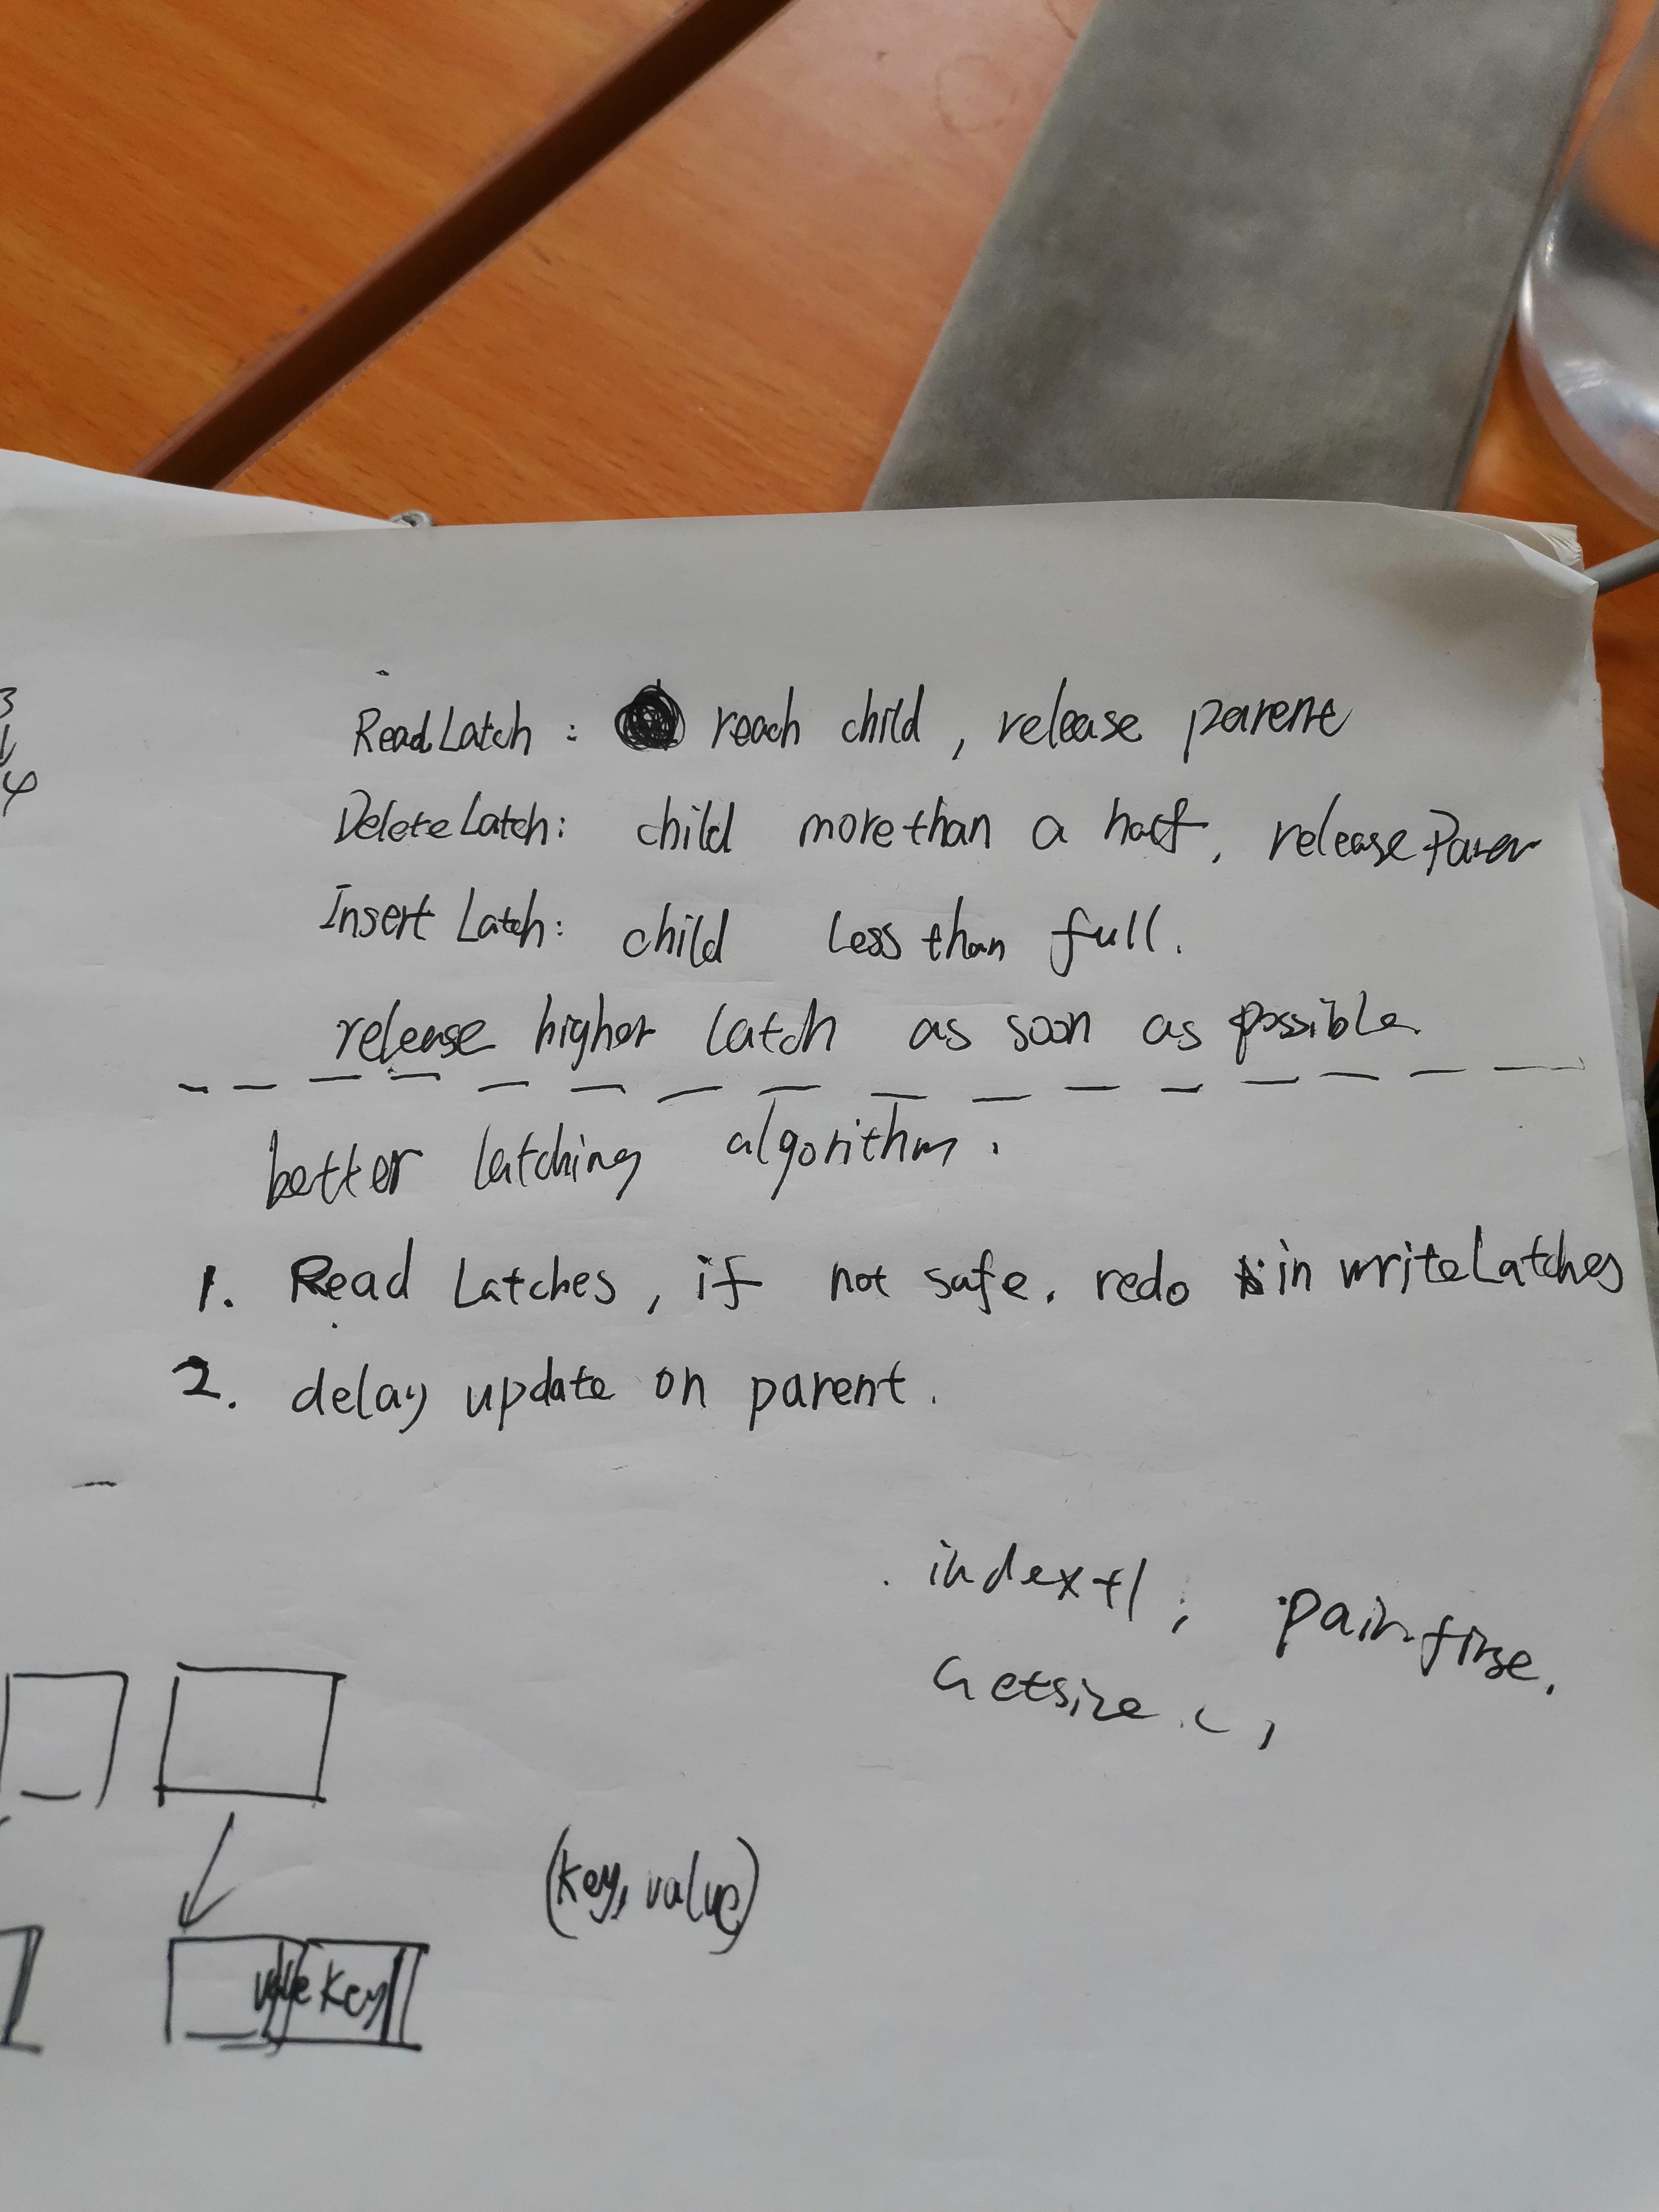 3
4
Read Latch : reach child, release parent
Delete Latch: child more than a half, release Paren
Insert Latch: child less than full.
release higher latch as soon as possible.
better latching algorithm.
1. Read Latches, if not safe. redo in write Latches
2. delay update on parent.
index+1; pair.first.
Getsize.( )
(key, value)
value key